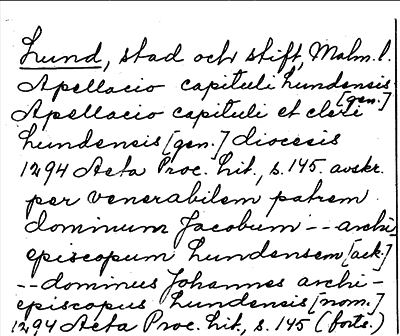 Lund, stad och stift, Malm. l.
Apellacio capituli Lundensis
[gen.]
Apellacio capituli et cleri
Lundensis [gen.] diocesis
1294 Acta Proc. Lit., s. 145. avskr.
per venerabilem patrem
dominum Jacobum -- archi
episcopum Lundensem [ack.]
-- dominus Johannes archi-
episcopus Lundensis [nom.]
1294 Acta Proc. Lit., s. 145 (forts.)